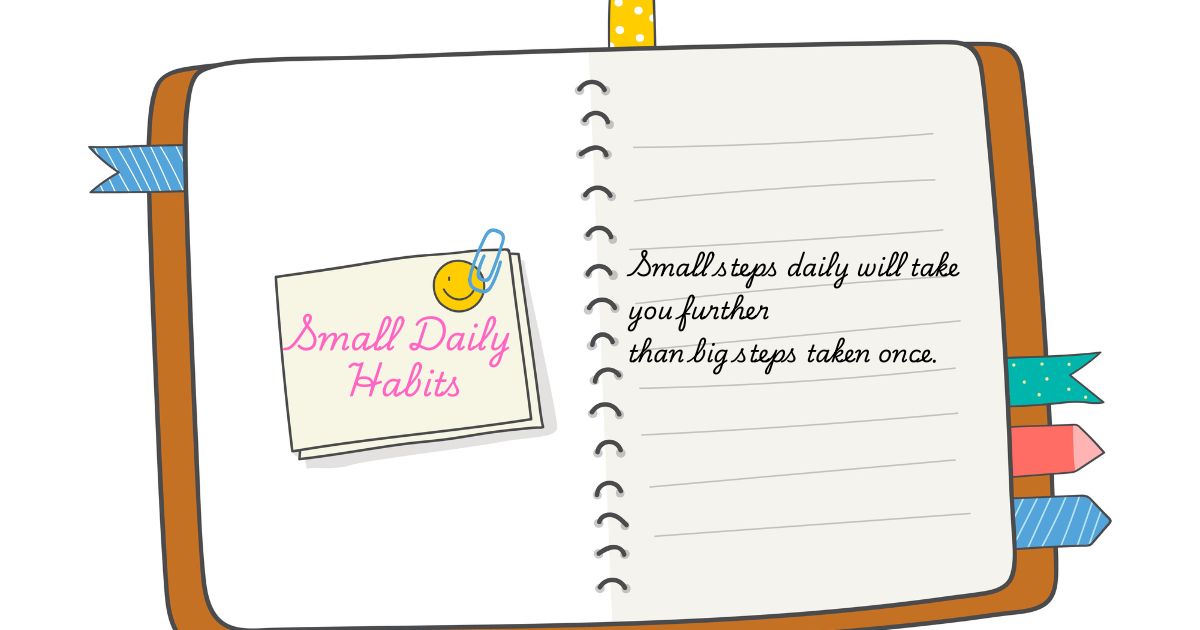 Small Daily
Habits
Small steps daily will take
you further
than big steps taken once.